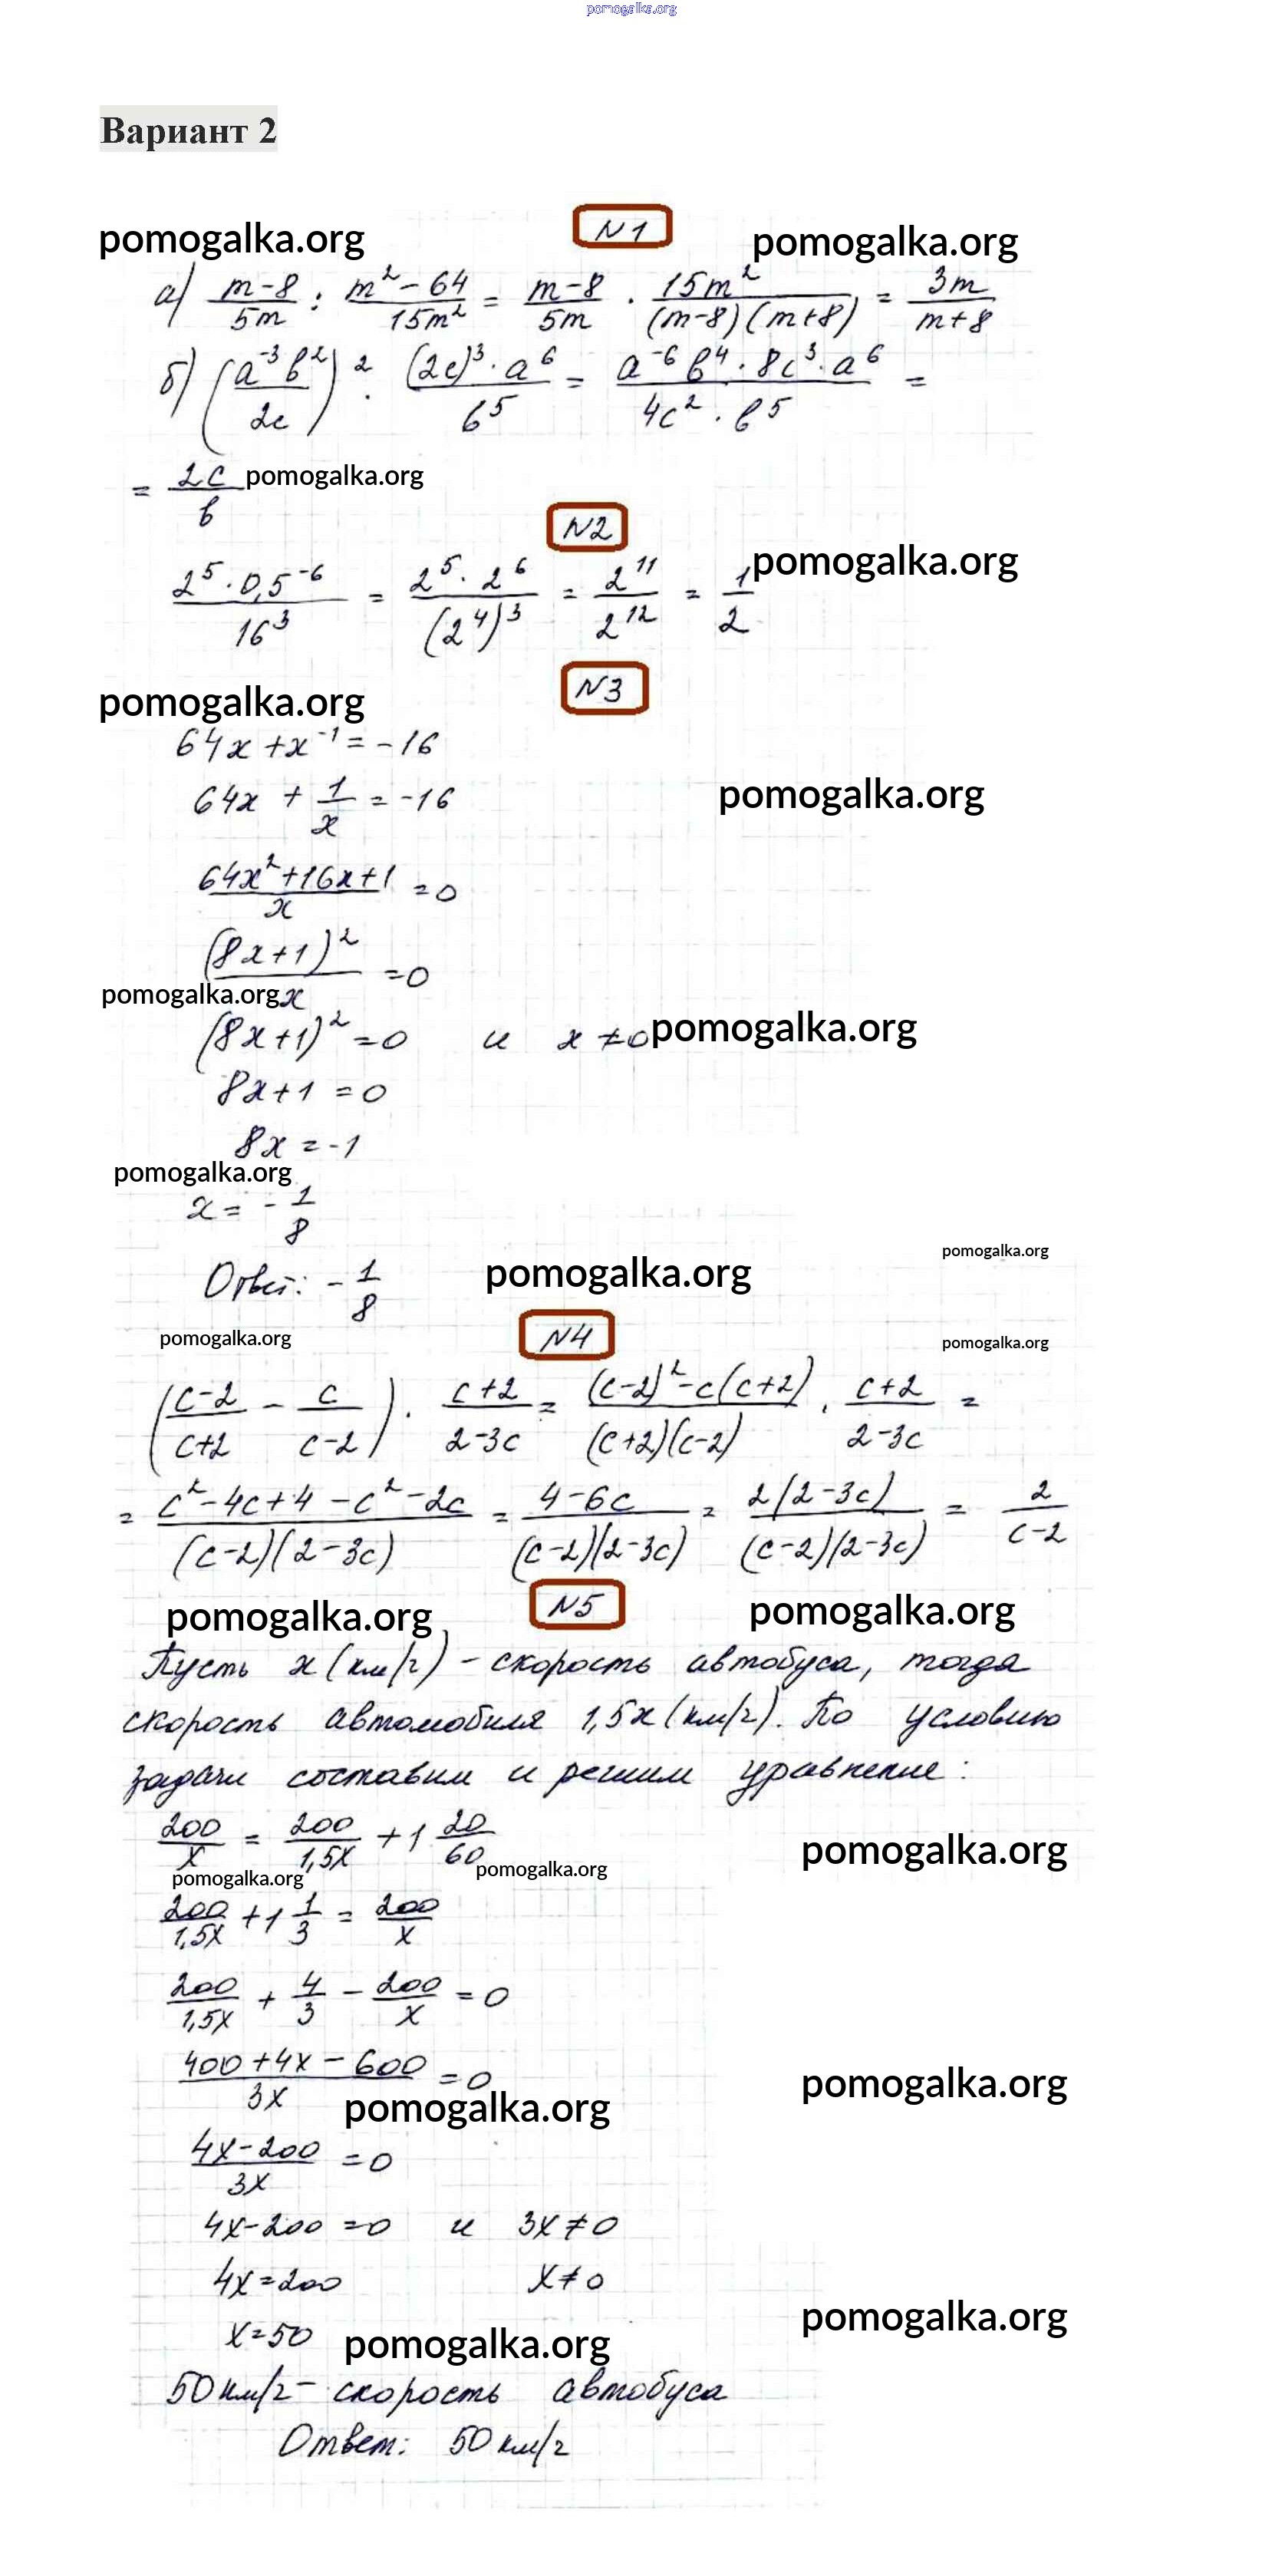 pomogalka.org
Вариант 2
pomogalka.org N1 pomogalka.org
а) (m-8)/(5m) : (m²-64)/(15m²) = (m-8)/(5m) · (15m²)/((m-8)(m+8)) = (3m)/(m+8)
б) ((a⁻³b²)/(2c))² · ((2c)³·a⁶)/(b⁵) = (a⁻⁶b⁴·8c³·a⁶)/(4c²·b⁵) =
= (2c)/b pomogalka.org
N2
(2⁵·0,5⁻⁶)/(16³) = (2⁵·2⁶)/((2⁴)³) = 2¹¹/2¹² = 1/2 pomogalka.org
pomogalka.org N3
64x+x⁻¹=-16
64x + 1/x = -16 pomogalka.org
(64x²+16x+1)/x = 0
(8x+1)²/x = 0
pomogalka.org
(8x+1)²=0 и x≠0 pomogalka.org
8x+1=0
8x=-1
pomogalka.org
x = -1/8
pomogalka.org
Ответ: -1/8 pomogalka.org
pomogalka.org N4 pomogalka.org
((c-2)/(c+2) - c/(c-2)) · (c+2)/(2-3c) = ((c-2)²-c(c+2))/((c+2)(c-2)) · (c+2)/(2-3c) =
= (c²-4c+4-c²-2c)/((c-2)(2-3c)) = (4-6c)/((c-2)(2-3c)) = (2(2-3c))/((c-2)(2-3c)) = 2/(c-2)
pomogalka.org N5 pomogalka.org
Пусть x (км/ч) - скорость автобуса, тогда
скорость автомобиля 1,5x (км/ч). По условию
задачи составим и решим уравнение:
200/x = 200/(1,5x) + 1 20/60 pomogalka.org
pomogalka.org pomogalka.org
200/(1,5x) + 1 1/3 = 200/x
200/(1,5x) + 4/3 - 200/x = 0
(400+4x-600)/(3x) = 0 pomogalka.org
pomogalka.org
(4x-200)/(3x) = 0
4x-200=0 и 3x≠0
4x=200 x≠0
x=50 pomogalka.org pomogalka.org
50 км/ч - скорость автобуса
Ответ: 50 км/ч